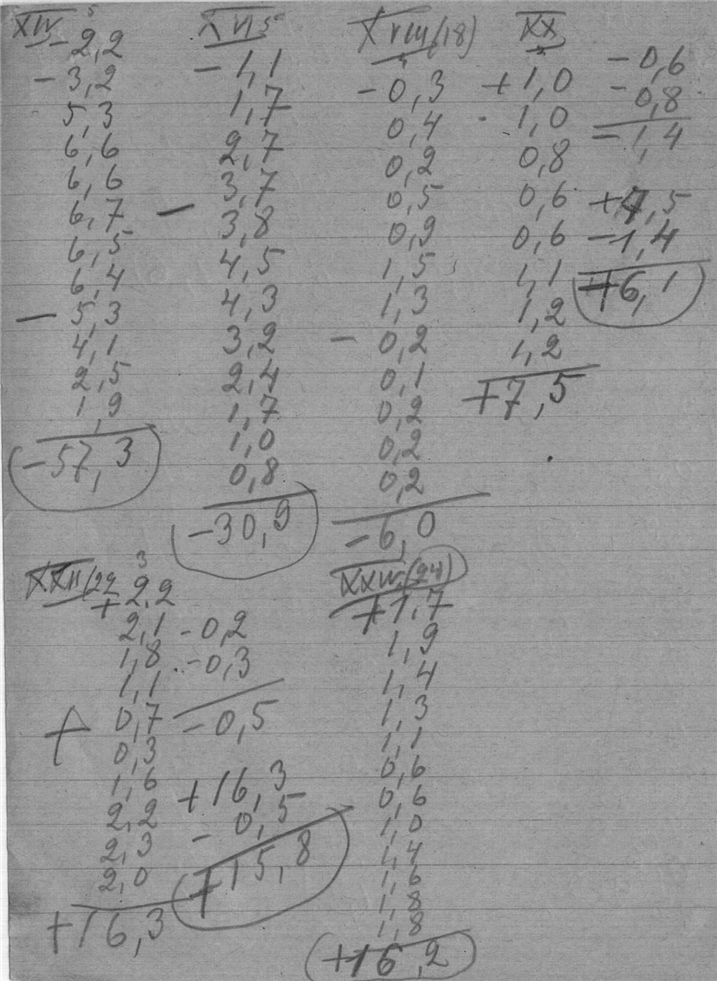 XIV
- 2,2
- 3,2
5,3
6,6
6,6
6,7
6,5
6,4
- 5,3
4,1
2,5
1,9
-57,3
- 1,1
1,7
2,7
3,7
- 3,8
4,5
4,3
3,2
2,4
1,7
1,0
0,8
-30,9
XVIII (18)
-0,3
0,4
0,2
0,5
0,9
1,5
1,3
- 0,2
0,1
0,2
0,2
0,2
-6,0
XX
+1,0
1,0
0,8
0,6
0,6
1,1
1,2
1,2
+7,5
-0,6
-0,8
-1,4
+7,5
-1,4
+6,1
XXII (22
+ 2,2
2,1
1,8
1,1
+ 0,7
0,3
1,6
2,2
2,3
2,0
+16,3
-0,2
-0,3
-0,5
+16,3
- 0,5
+15,8
XXIV (24)
+1,7
1,9
1,4
1,3
1,1
0,6
0,6
1,0
1,4
1,6
1,8
1,8
+16,2